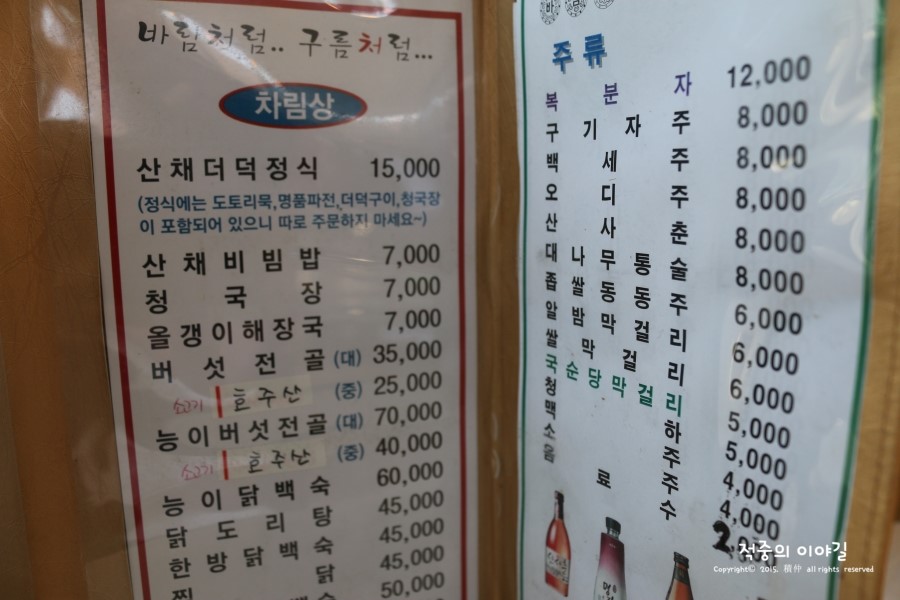 바람처럼.. 구름처럼...
차림상
산채더덕정식 15,000
(정식에는 도토리묵,명품파전,더덕구이,청국장
이 포함되어 있으니 따로 주문하지 마세요~)
산채비빔밥 7,000
청국장 7,000
올갱이해장국 7,000
버섯전골 (대) 35,000
소고기 호주산 (중) 25,000
능이버섯전골 (대) 70,000
소고기 호주산 (중) 40,000
능이닭백숙 60,000
닭도리탕 45,000
한방닭백숙 45,000
찜닭 45,000
50,000
주류
복분자주 12,000
구기자주 8,000
백세주 8,000
오디주 8,000
산사춘 8,000
대나무통술 8,000
좁쌀동동주 6,000
알밤막걸리 6,000
쌀막걸리 6,000
국순당막걸리 5,000
청하 5,000
맥주 4,000
소주 4,000
음료수 2,000
적중의 이야길
Copyright© 2015. 積仲 all rights reserved